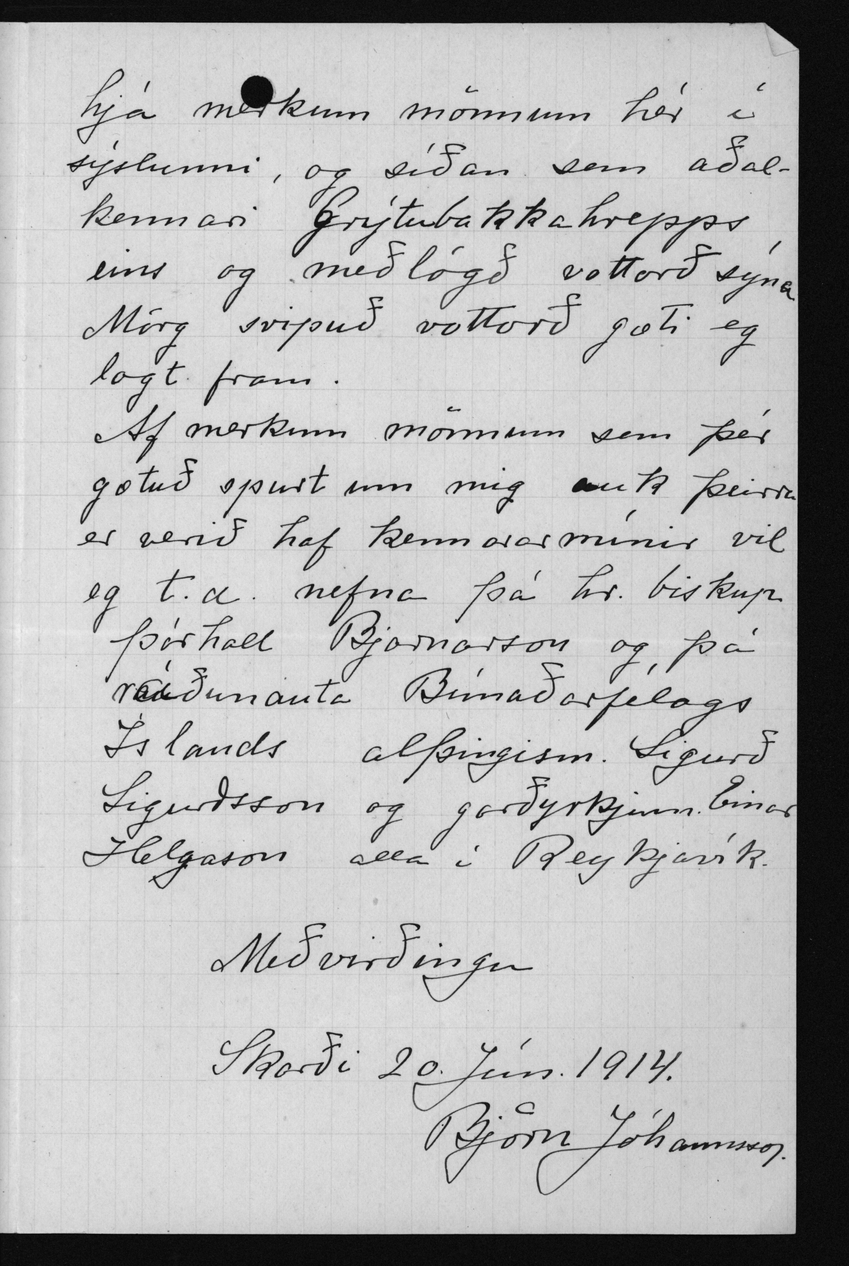 hjá merkum mönnum hér í
sýslunni, og síðan sem aðal-
kennari Grýtubakkahrepps,
eins og meðlögð vottorð sýna
Mörg svipuð vottorð gæti eg
lagt fram.
Af merkum mönnum sem þér
gætuð spurt um mig auk þeirra
er verið haf kennarar mínir vil
eg t.d. nefna þá hr. biskup
Þórhall Bjarnarson og þá
ráðunauta Búnaðarfélags
Íslands alþingism. Sigurð
Sigurðsson og garðyrkjum. Einar
Helgason alla í Reykjavík.
Með virðingu
Skarði 20. Jún. 1914.
Björn Jóhannsson.